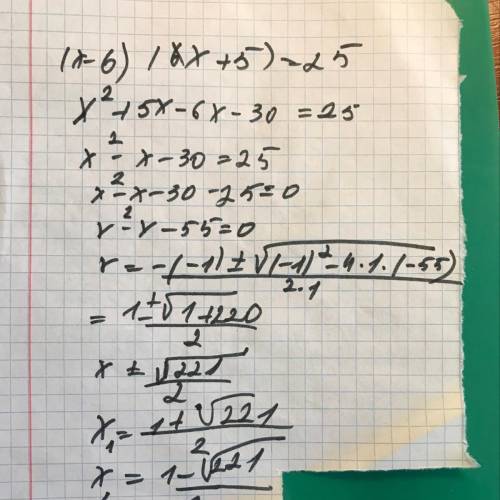 (x-6) (x+5) = 25
x² + 5x - 6x - 30 = 25
x² - x - 30 = 25
x² - x - 30 - 25 = 0
x² - x - 55 = 0
x = -(-1) ± √(-1)² - 4·1·(-55) / 2·1
= 1 ± √1+220 / 2
x ± √221 / 2
x₁ = 1 + √221 / 2
x = 1 - √221